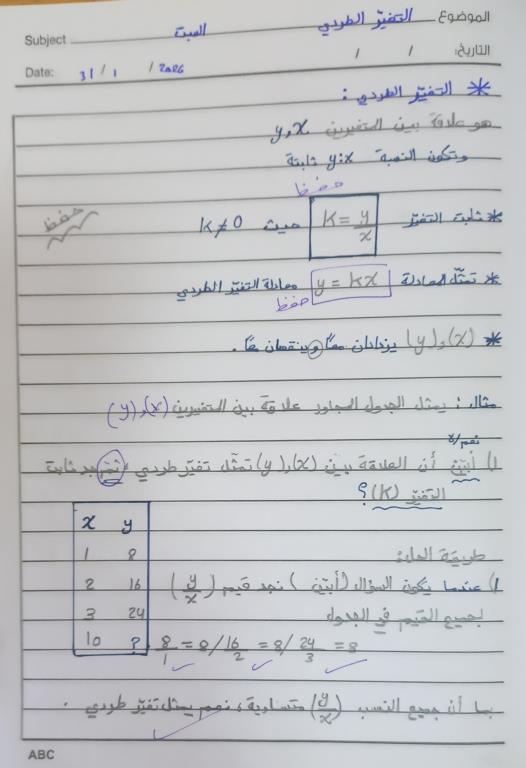 الموضوع التغيّر الطردي
Subject السبت
التاريخ: / /
Date: 31 / 1 / 2026
* التغيّر الطردي :
هو علاقة بين المتغيرين x و y
وتكون النسبة y:x ثابتة
حفظ
* ثابت التغيّر K = y/x حيث K ≠ 0 حفظ
* تمثّل المعادلة y = kx معادلة التغيّر الطردي
حفظ
* (x) و (y) يزدادان معًا وينقصان معًا .
مثال : يمثل الجدول المجاور علاقة بين المتغيرين (x) و (y)
نعم/لا
1) أبيّن أن العلاقة بين (x) و (y) تمثّل تغيّر طردي ، ثم جد ثابت
التغيّر (K) ؟
x y
1 8
2 16
3 24
10 ?
طريقة الحل:
1) عندما يكون السؤال (أبيّن) نجد قيم (y/x)
لجميع القيم في الجدول
8/1 = 8 / 16/2 = 8 / 24/3 = 8
بما أن جميع النسب (y/x) متساوية ، نعم يمثل تغيّر طردي .
ABC